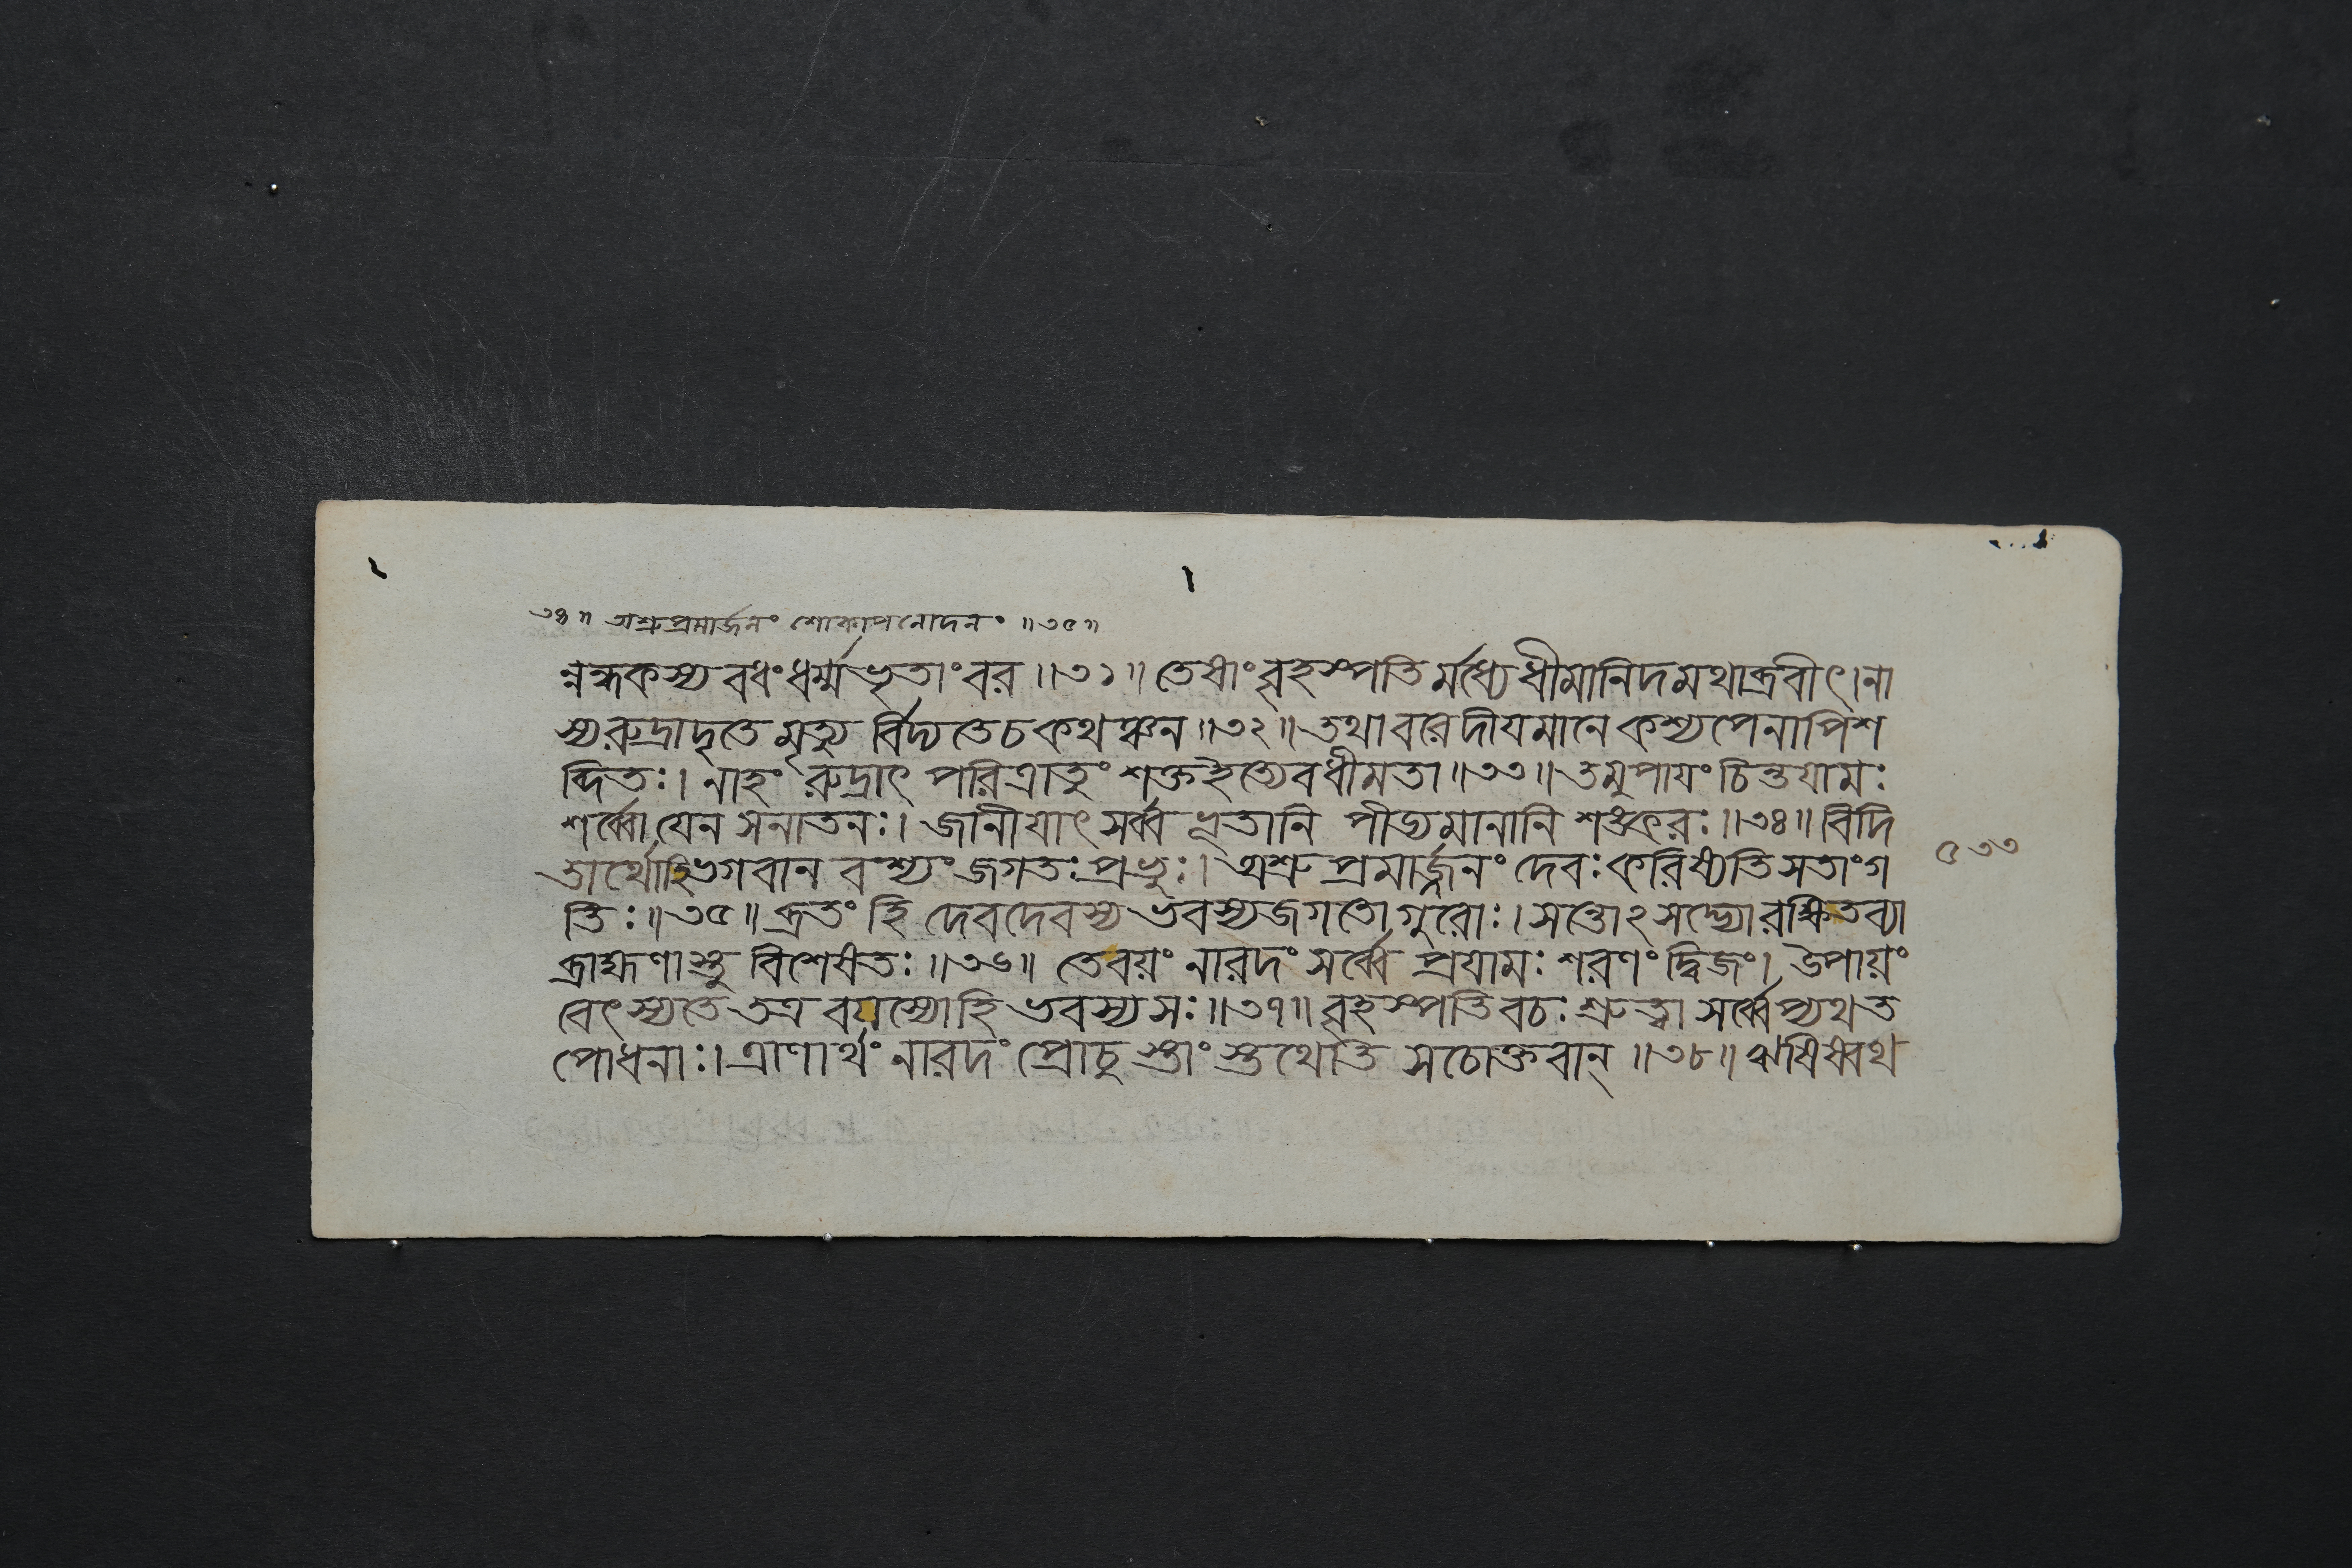 ৩৪॥ অশ্রুপ্রমার্জনং শোকাপনোদনং ॥৩৫॥
ন্নন্ধকস্য বধং ধর্ম্মভৃতাং বর ॥৩১॥ তেষাং বৃহস্পতির্মধ্যে ধীমানিদমথাব্রবীৎ। না
স্য রুদ্রাদৃতে মৃত্যুর্বিদ্যতে চ কথঞ্চন ॥৩২॥ তথা বরে দীযমানে কশ্যপেনাপি শ
ব্দিতঃ। নাহং রুদ্রাৎ পরিত্রাতুং শক্ত ইত্যেব ধীমতা ॥৩৩॥ তমুপাযং চিন্তযামঃ
শর্ব্বো যেন সনাতনঃ। জানীযাৎ সর্ব্বভূতানি পীড্যমানানি শঙ্করঃ ॥৩৪॥ বিদি
তার্থো হি ভগবান বশ্যং জগতঃ প্রভুঃ। অশ্রুপ্রমার্জ্জনং দেবঃ করিষ্যতি সতাং গ
৫৩৩
তিঃ ॥৩৫॥ ব্রতং হি দেবদেবস্য ভবস্য জগতো গুরোঃ। সন্তোঽসদ্ভ্যো রক্ষিতব্যা
ব্রাহ্মণাস্তু বিশেষতঃ ॥৩৬॥ তে বয়ং নারদং সর্ব্বে প্রযামঃ শরণং দ্বিজং। উপায়ং
বেৎস্যতে তত্র বযস্যো হি ভবস্য সঃ ॥৩৭॥ বৃহস্পতিবচঃ শ্রুত্বা সর্ব্বেপ্যথ ত
পোধনাঃ। ত্রাণার্থং নারদং প্রোচুস্তাংস্তথেতি স চোক্তবান্ ॥৩৮॥ ঋষিষ্বথ